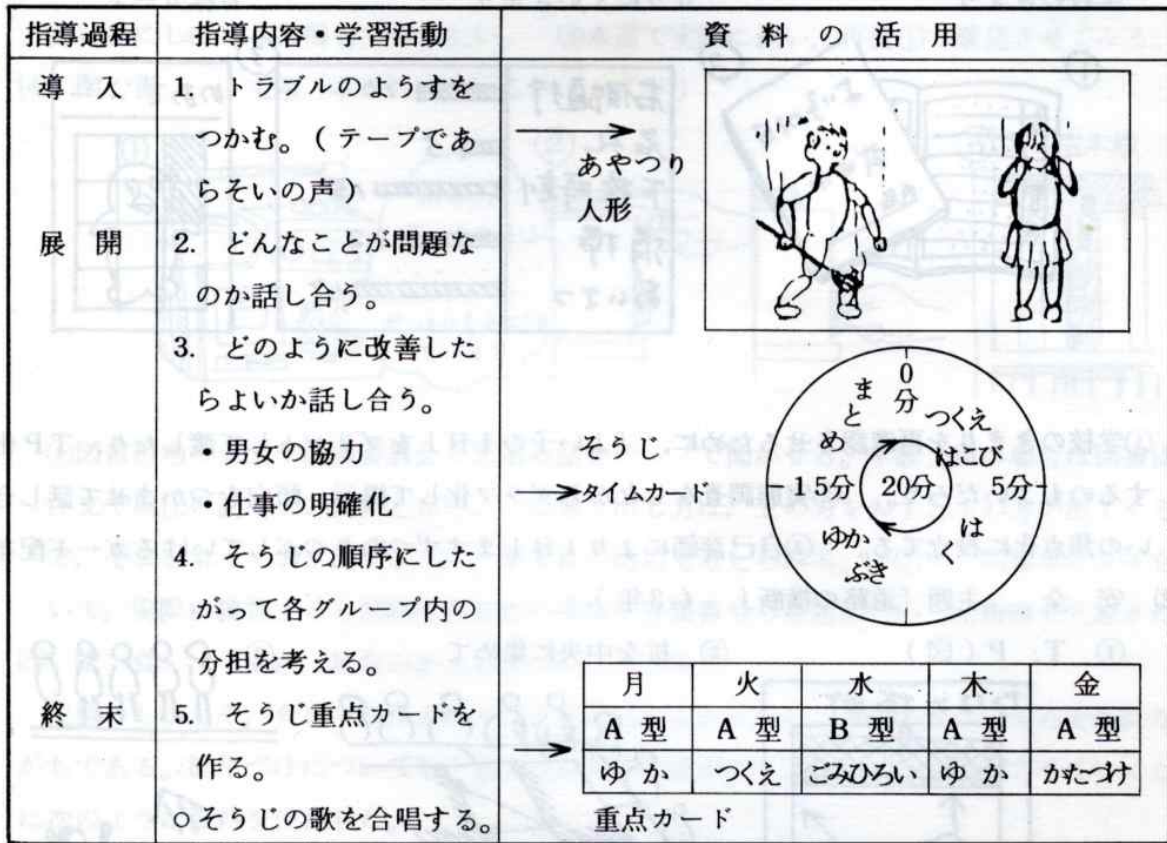 指導過程 指導内容・学習活動 資料の活用
導入 1. トラブルのようすを
つかむ。(テープであ
らそいの声)
あやつり
人形
展開 2. どんなことが問題な
のか話し合う。
3. どのように改善した
らよいか話し合う。
・男女の協力
・仕事の明確化
4. そうじの順序にした
がって各グループ内の
分担を考える。
そうじ
タイムカード
0分
つくえ
はこび
5分
はく
ゆか
ぶき
15分
まとめ
20分
終末 5. そうじ重点カードを
作る。
○そうじの歌を合唱する。
月 火 水 木 金
A型 A型 B型 A型 A型
ゆか つくえ ごみひろい ゆか かたづけ
重点カード